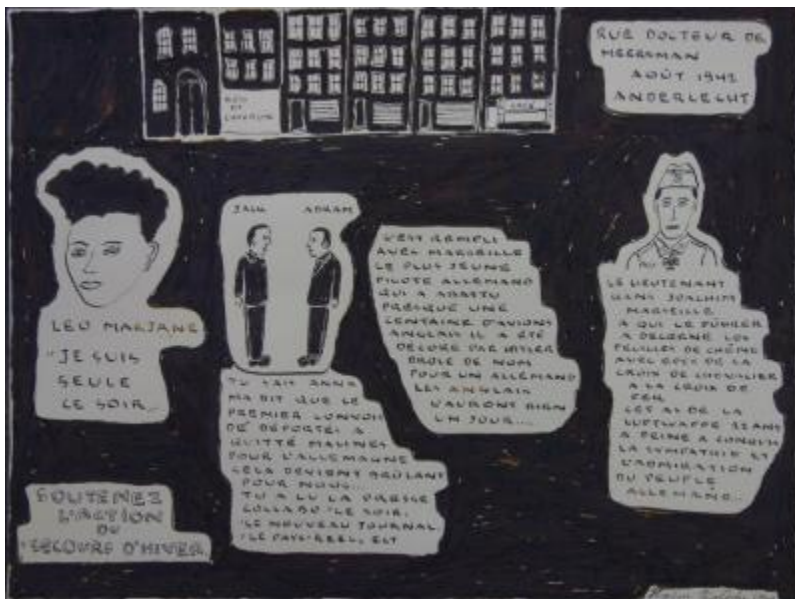 RUE DOCTEUR DE
MEERSMAN
AOÛT 1942
ANDERLECHT
LEO MARJANE
"JE SUIS
SEULE
CE SOIR...
JACK ABRAM
TU SAIT ANNA
MA DIT QUE LE
PREMIER CONVOI
DE DÉPORTÉS A
QUITTÉ MALINES
POUR L'ALLEMAGNE
CELA DEVIENT BRÛLANT
POUR NOUS...
TU A LU LA PRESSE
COLLABO "LE SOIR,
"LE NOUVEAU JOURNAL,
"LE PAYS-RÉEL, EST
REMPLI
AVEC MARSEILLE
LE PLUS JEUNE
PILOTE ALLEMAND
QUI A ABATTU
PRESQUE UNE
CENTAINE D'AVIONS
ANGLAIS IL A ÉTÉ
DÉCORÉ PAR HITLER
DRÔLE DE NOM
POUR UN ALLEMAND
LES ANGLAIS
L'AURONT BIEN
UN JOUR....
LE LIEUTENANT
HANS JOACHIM
MARSEILLE
A QUI LE FÜHRER
A DÉCERNÉ LES
FEUILLES DE CHÊNE
AVEC
CROIX DE CHEVALIER
A LA CROIX DE
FER
CET AS DE LA
LUFTWAFFE 22 ANS
A PEINE A CONQUIS
LA SYMPATHIE ET
L'ADMIRATION
DU PEUPLE
ALLEMAND...
SOUTENEZ
L'ACTION
DU
"SECOURS D'HIVER,